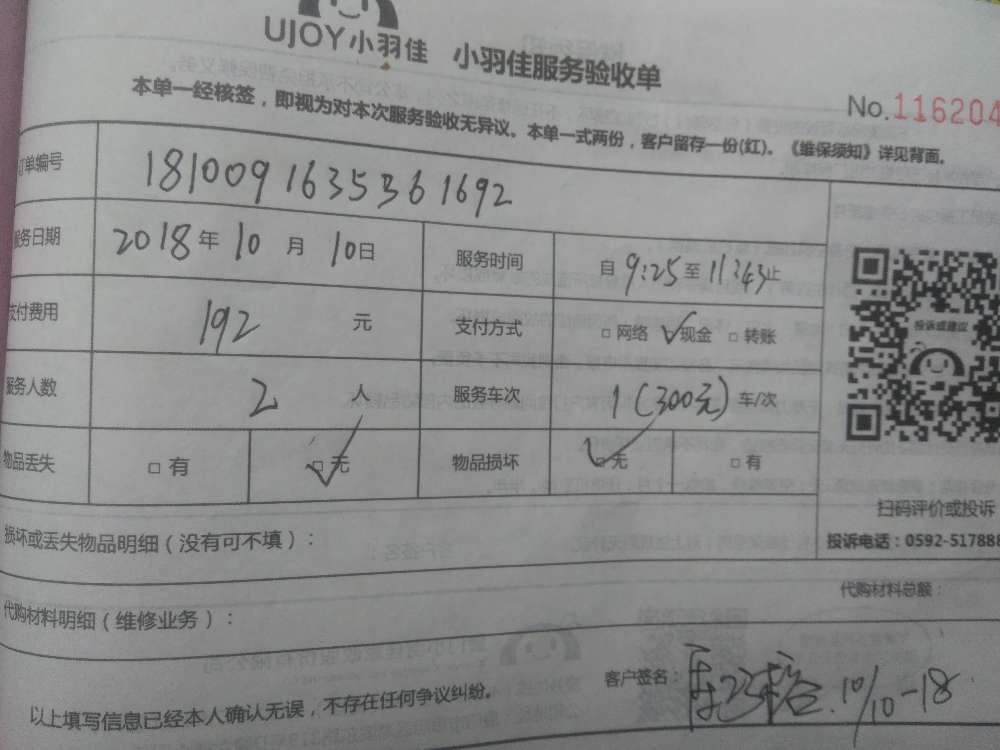 UJOY小羽佳 小羽佳服务验收单
No.116204
本单一经核签，即视为对本次服务验收无异议。本单一式两份，客户留存一份(红)。《维保须知》详见背面。
订单编号 1810091635361692
服务日期 2018年10月10日 服务时间 自9:25至11:43止
支付费用 192元 支付方式 □网络 ✓现金 □转账
服务人数 2人 服务车次 1(300元)车/次
物品丢失 □有 ☑无 物品损坏 ☑无 □有
投诉或建议
扫码评价或投诉
投诉电话：0592-517888
损坏或丢失物品明细（没有可不填）：
代购材料明细（维修业务）： 代购材料总额：
以上填写信息已经本人确认无误，不存在任何争议纠纷。 客户签名： 10/10-18